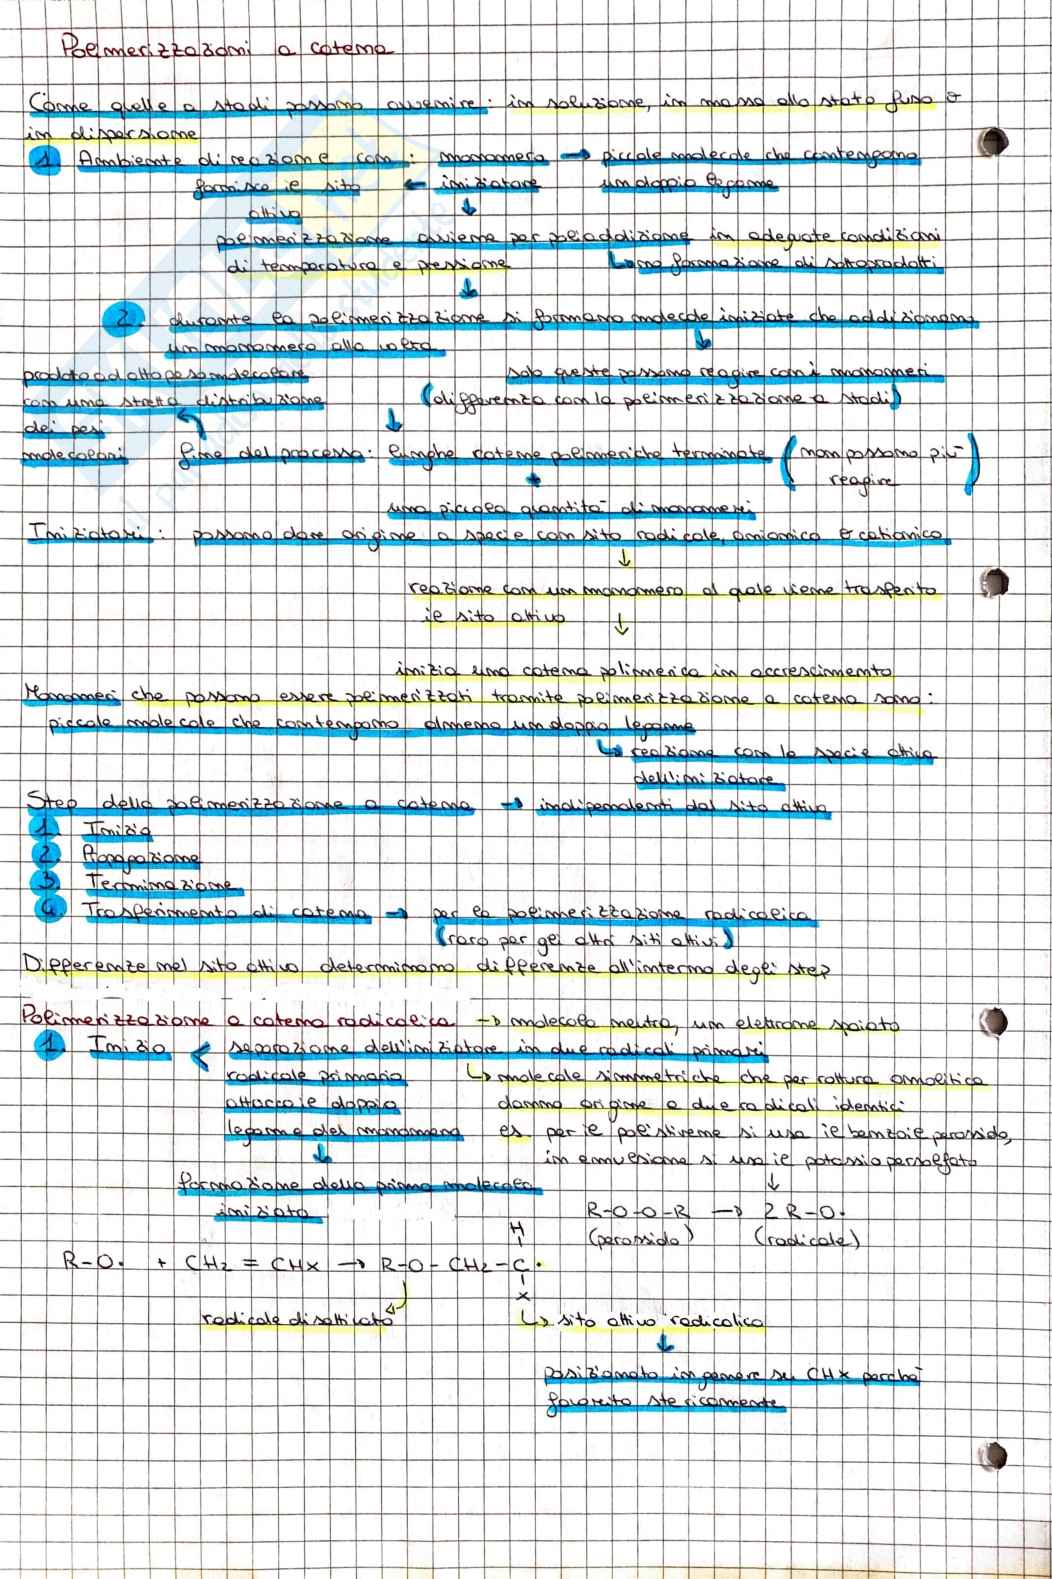 Polimerizzazioni a catena
Come quelle a stadi possono avvenire: in soluzione, in massa allo stato fuso o
in dispersione
1. Ambiente di reazione con: monomero → piccole molecole che contengono
fornisce il sito ← iniziatore un doppio legame
attivo ↓
polimerizzazione avviene per poliaddizione in adeguate condizioni
di temperatura e pressione ↳ no formazione di sottoprodotti
↓
2. durante la polimerizzazione si formano molecole iniziate che addizionano
un monomero alla volta ↓
prodotto ad alto peso molecolare solo queste possono reagire con i monomeri
con una stretta distribuzione (differenza con la polimerizzazione a stadi)
dei pesi ↓
molecolari fine del processo: lunghe catene polimeriche terminate (non possono più
+ reagire)
una piccola quantità di monomeri
Iniziatori: possono dare origine a specie con sito radicale, anionico o cationico
↓
reazione con un monomero al quale viene trasferito
il sito attivo ↓
inizia una catena polimerica in accrescimento
Monomeri che possono essere polimerizzati tramite polimerizzazione a catena sono:
piccole molecole che contengono almeno un doppio legame
↳ reazione con la specie attiva
dell'iniziatore
Step della polimerizzazione a catena → indipendenti dal sito attivo
1. Inizio
2. Propagazione
3. Terminazione
4. Trasferimento di catena → per la polimerizzazione radicalica
(raro per gli altri siti attivi)
Differenze nel sito attivo determinano differenze all'interno degli step
Polimerizzazione a catena radicalica → molecola neutra, un elettrone spaiato
1. Inizio < separazione dell'iniziatore in due radicali primari
radicale primario ↳ molecole simmetriche che per rottura omolitica
attacca il doppio danno origine a due radicali identici
legame del monomero es. per il polistirene si usa il benzoil perossido,
↓ in emulsione si usa il potassio persolfato
formazione della prima molecola ↓
iniziata R-O-O-R → 2 R-O•
H (perossido) (radicale)
R-O• + CH2 = CHX → R-O-CH2-C•
X
radicale disattivato ↳ sito attivo radicalico
↓
posizionato in genere su CHX perché
favorito stericamente